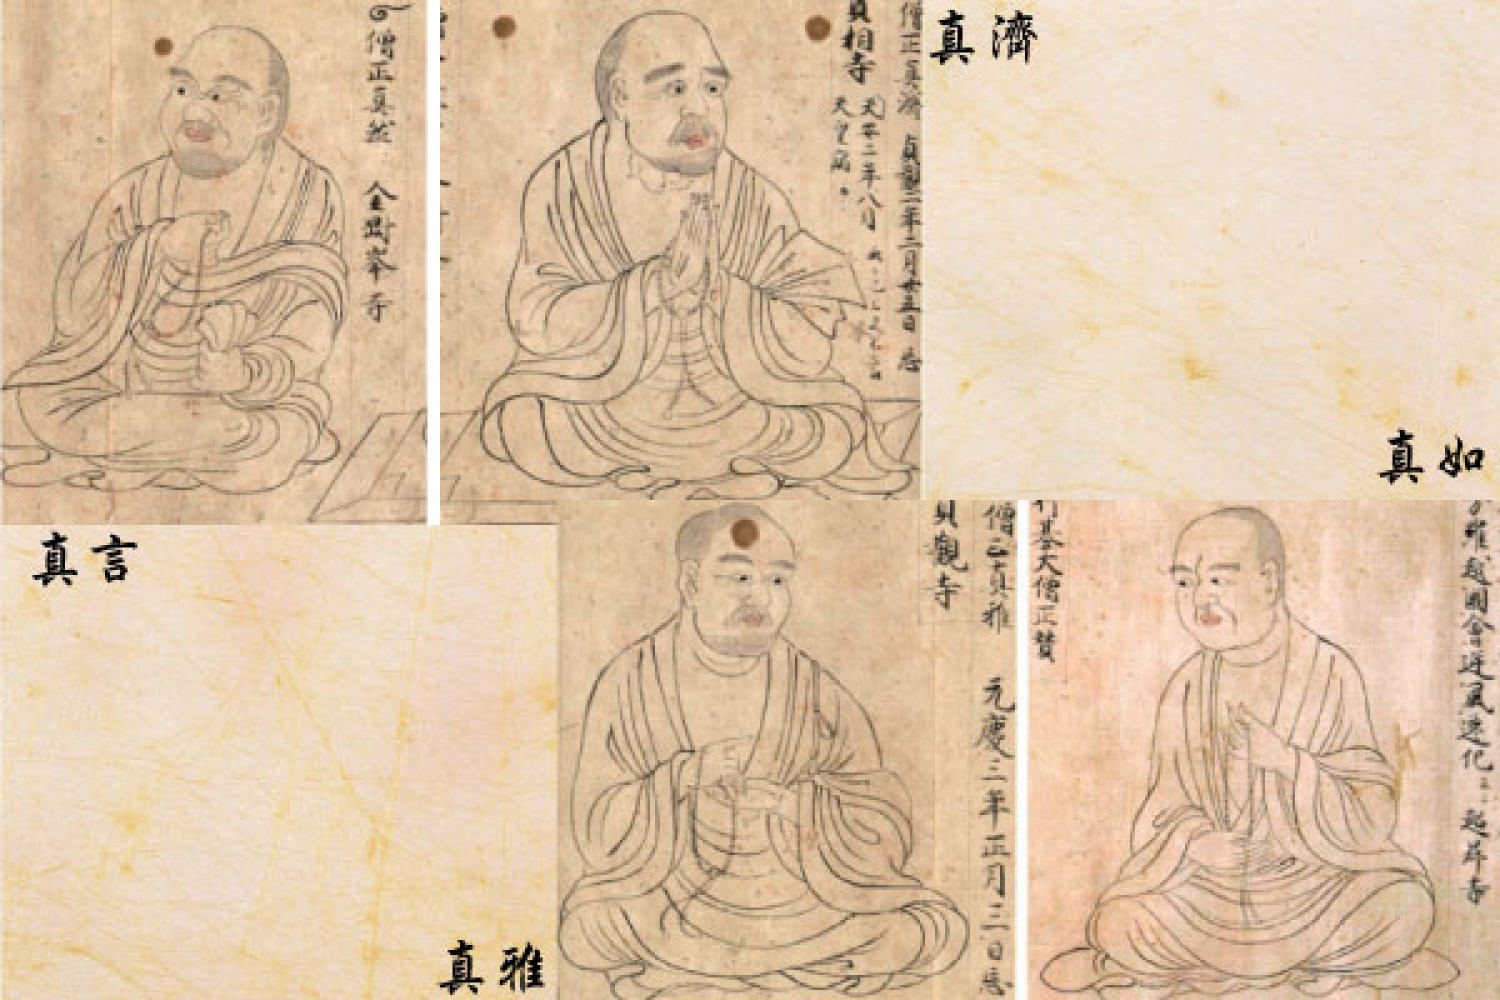 僧正真然 金剛峯寺
僧正真済 貞観二年二月廿五日忌
貞相寺
天安二年八月
天皇
真 濟
真 如
真 言
真 雅
僧正真雅 元慶三年正月三日忌
貞觀寺
羅越國會逆風遷化 超昇寺
行基大僧正賛